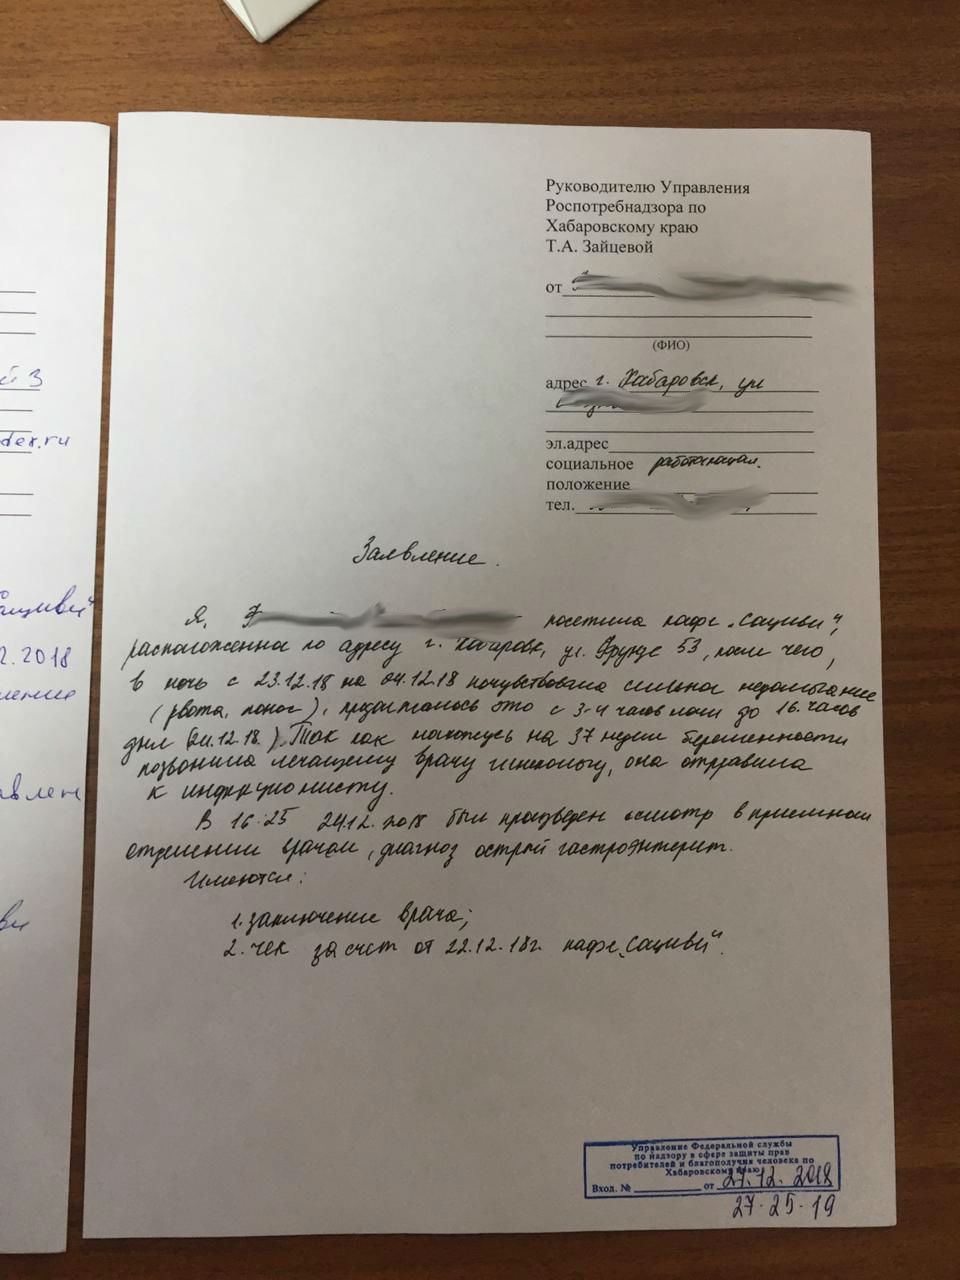 Руководителю Управления
Роспотребнадзора по
Хабаровскому краю
Т.А. Зайцевой
от
(ФИО)
адрес г. Хабаровск, ул
эл.адрес
социальное работающая.
положение
тел.
Заявление.
Я, посетила кафе „Сациви",
расположенна по адресу г. Хабаровск, ул. Фрунзе 53, после чего,
в ночь с 23.12.18 на 24.12.18 почувствовала сильное недомогание
(рвота, понос), продолжалось это с 3-4 часов ночи до 16 часов
дня (24.12.18.). Так как нахожусь на 37 недели беременности
позвонила лечащему врачу гинекологу, она отправила
к инфекционисту.
В 16-25 24.12.2018 был произведен осмотр в приемном
отделении врачом, диагноз острый гастроэнтерит.
Имеются:
1. заключение врача;
2. чек за счет от 22.12.18г. кафе „Сациви".
Управление Федеральной службы
по надзору в сфере защиты прав
потребителей и благополучия человека по
Хабаровскому краю
Вход. № от 27.12.2018
27-25-19
й 3
dex.ru
ациви"
2.2018
ление
авлен
ви